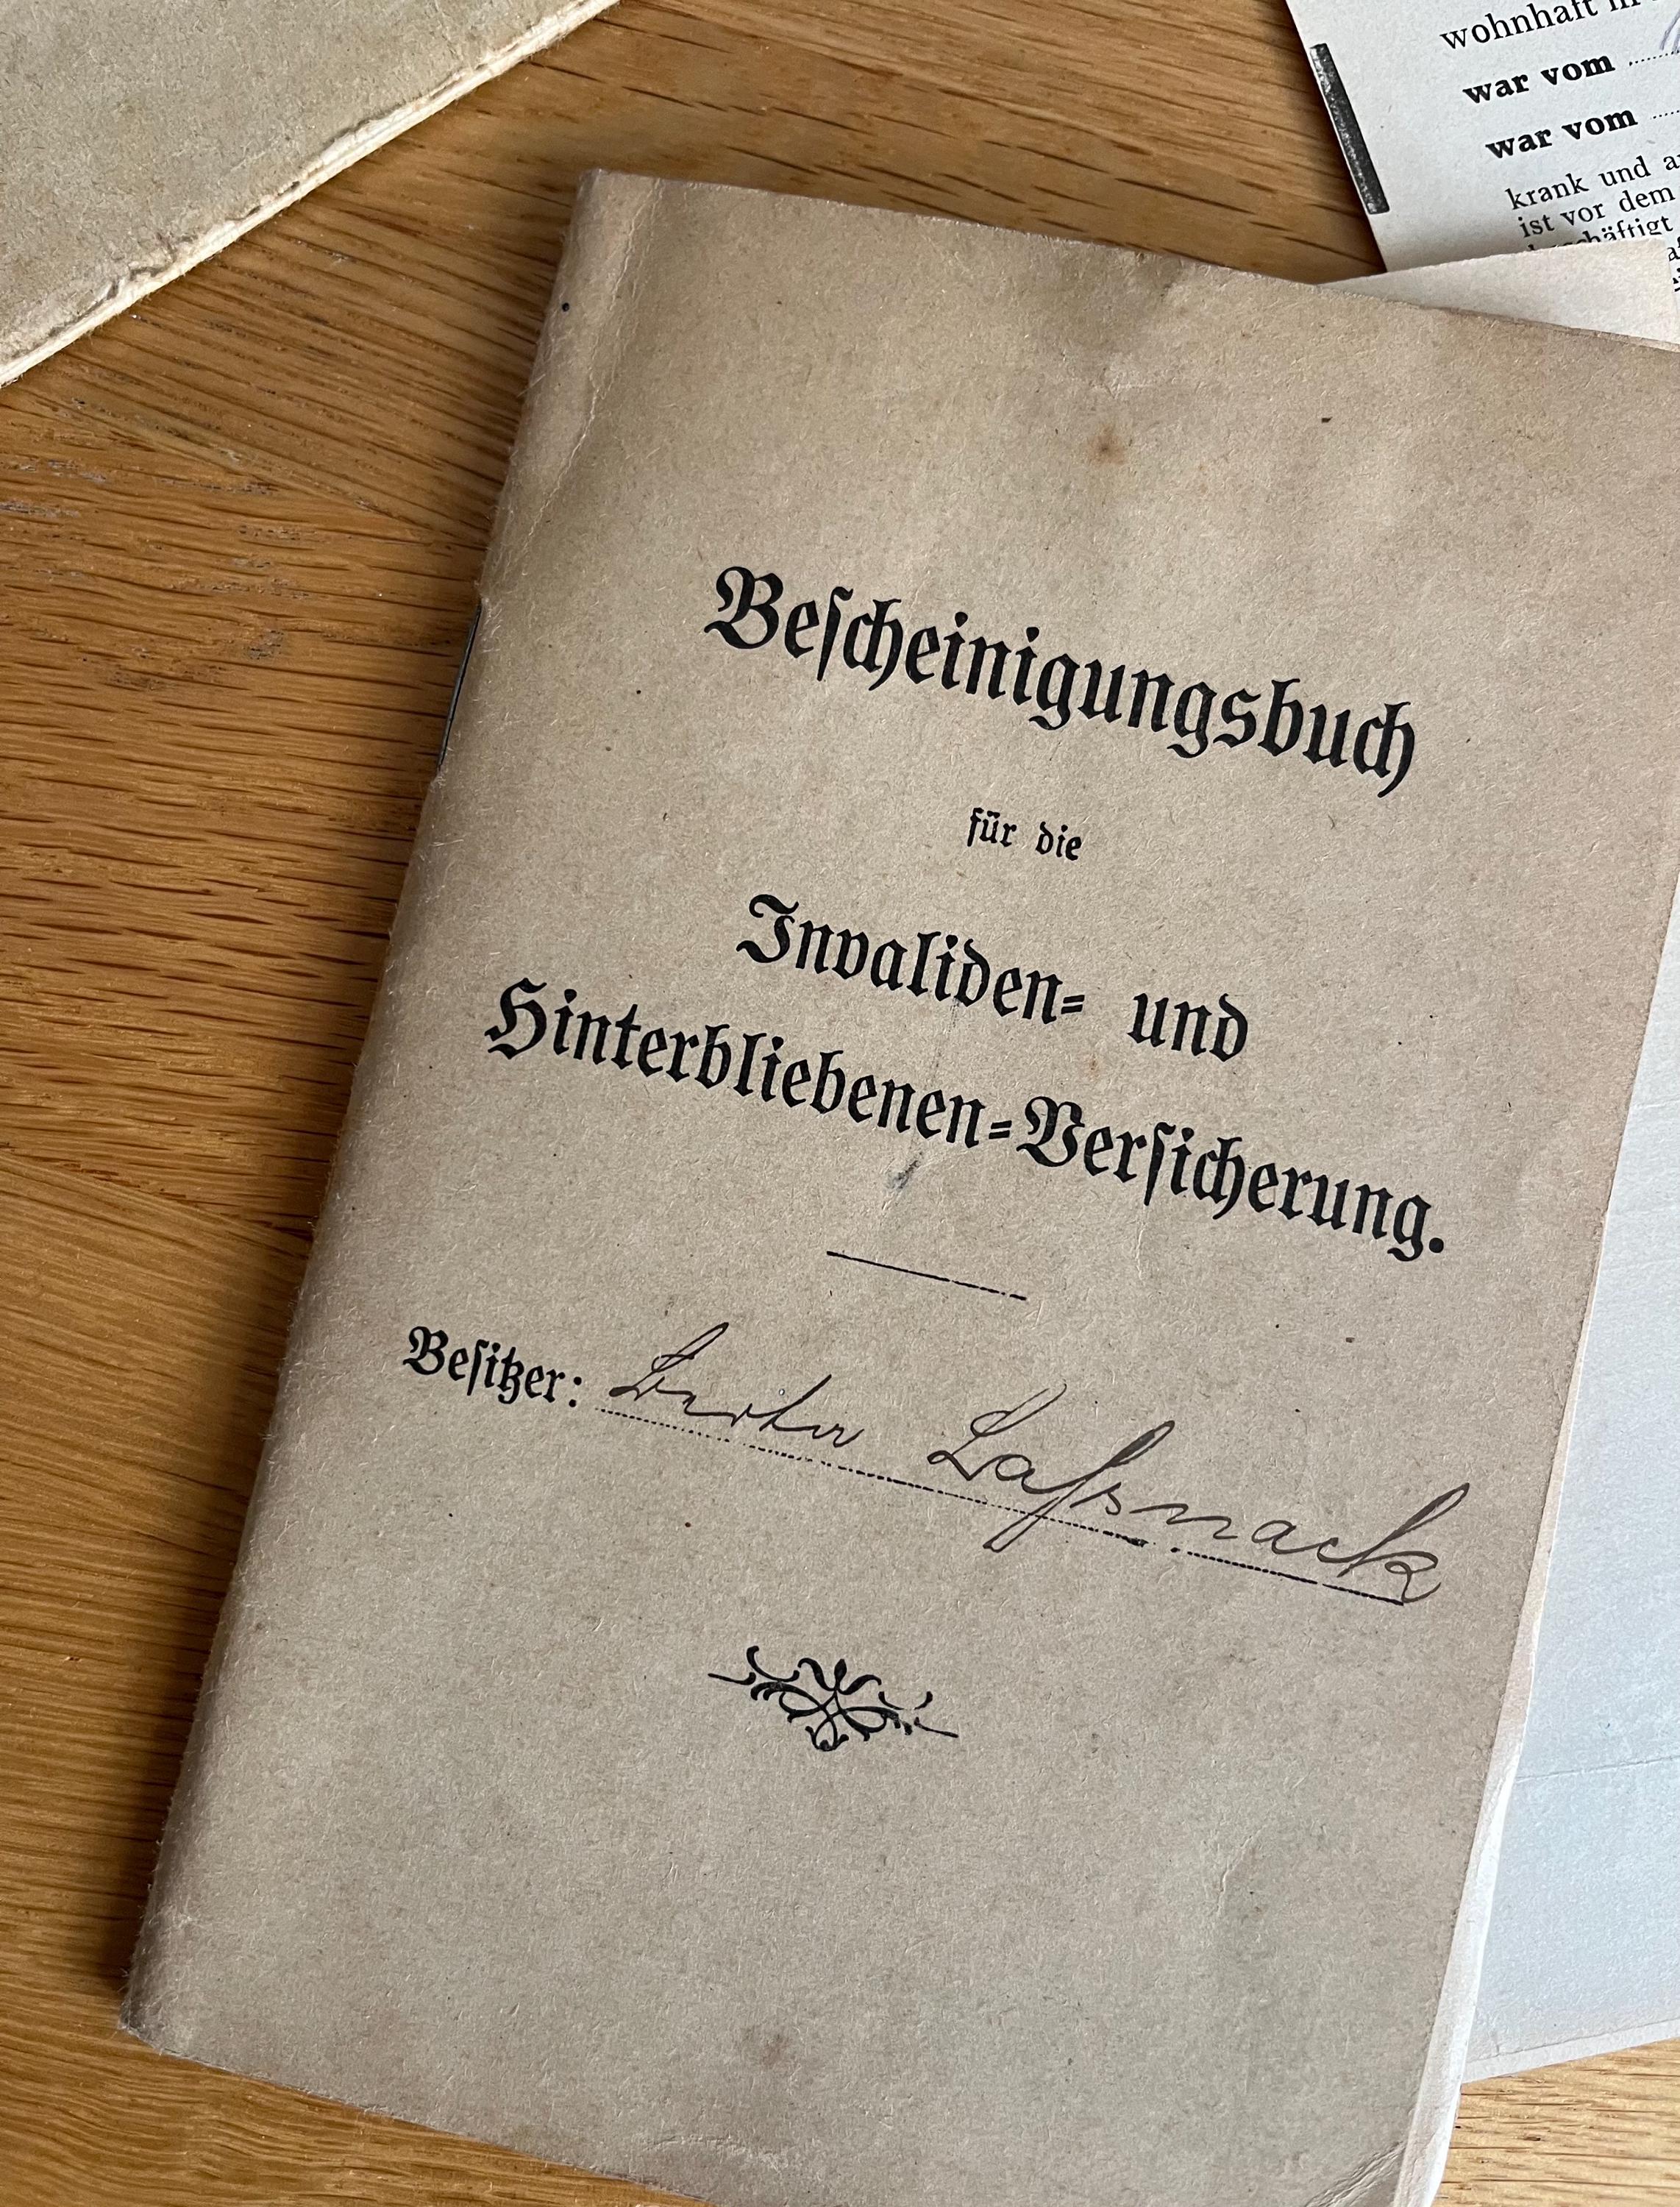 wohnhaft in
war vom
war vom
krank und a
ist vor dem
beschäftigt
Bescheinigungsbuch
für die
Invaliden= und
Hinterbliebenen=Versicherung.
Besitzer: Berta Lassnack